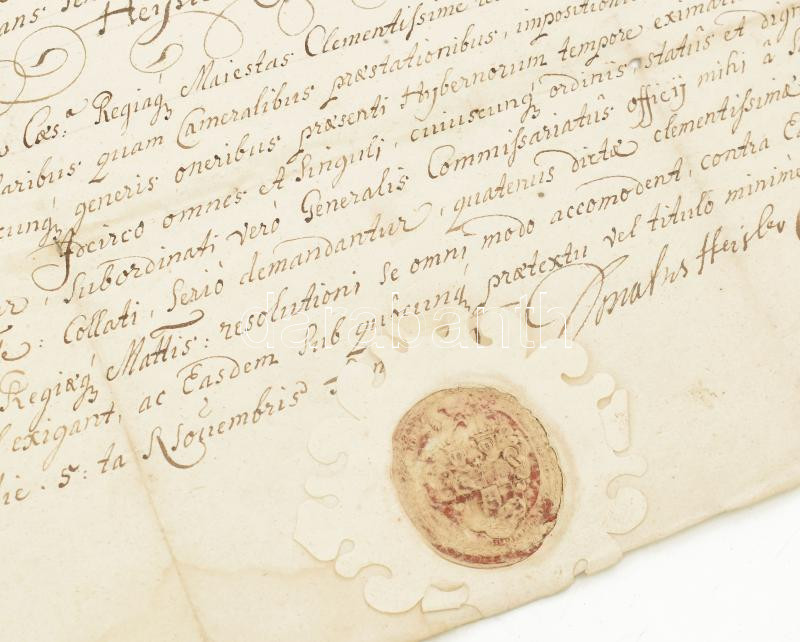 Heisle
Cæs:ª Regiaq Maiestas Clementissime re
aribus quam Cameralibus præstationibus, impositioni
cunq generis oneribus præsenti Hybernorum tempore exima
Idcirco omnes et Singuli, cuiuscunq ordinis, statûs et dign
r, Subordinati verò Generalis Commissariatûs officij mihi â S
e: Collati, Seriò demandantur, quatenus dictæ clementissimæ
Regiæq Mattis: resolutioni se omni modo accomodent, contra E
exigant, ac Easdem Sub quôcunq prætextu vel titulô minimè
die. 5: ta Novembris
Donatus Heisler
darabanth